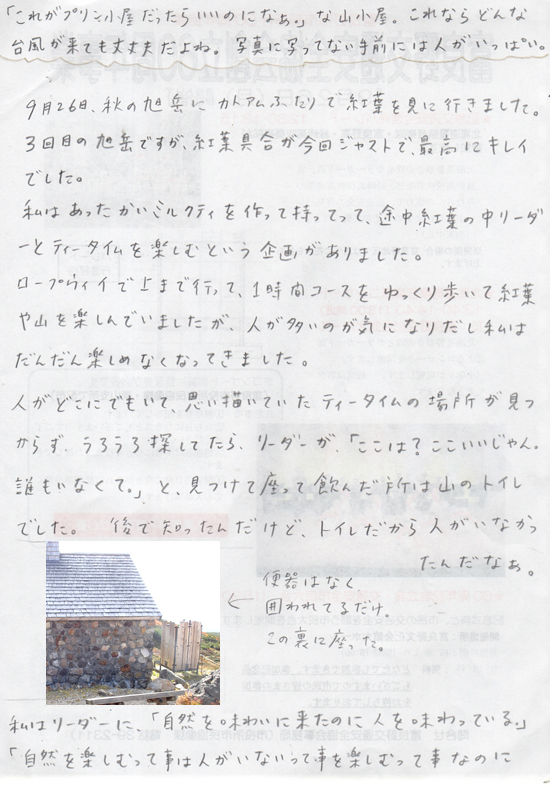 「これがプリン小屋だったらいいのになぁ。」な山小屋。これならどんな
台風が来ても丈夫だよね。写真に写ってない手前には人がいっぱい。
9月26日、秋の旭岳にカトアムふたりで紅葉を見に行きました。
3回目の旭岳ですが、紅葉具合が今回ジャストで、最高にキレイ
でした。
私はあったかいミルクティを作って持ってって、途中紅葉の中リーダ
ーとティータイムを楽しむという企画がありました。
ロープウェイで上まで行って、1時間コースをゆっくり歩いて紅葉
や山を楽しんでいましたが、人が多いのが気になりだし私は
だんだん楽しめなくなってきました。
人がどこにでもいて思い描いていたティータイムの場所が見つ
からず、うろうろ探してたら、リーダーが、「ここは?ここいいじゃん。
誰もいなくて。」と、見つけて座って飲んだ所は山のトイレ
でした。 後で知ったんだけど、トイレだから人がいなかっ
たんだなぁ。
便器はなく
囲われてるだけ。
この裏に座った。
私はリーダーに、「自然を味わいに来たのに人を味わっている。」
「自然を楽しむって事は人がいないって事を楽しむって事なのに